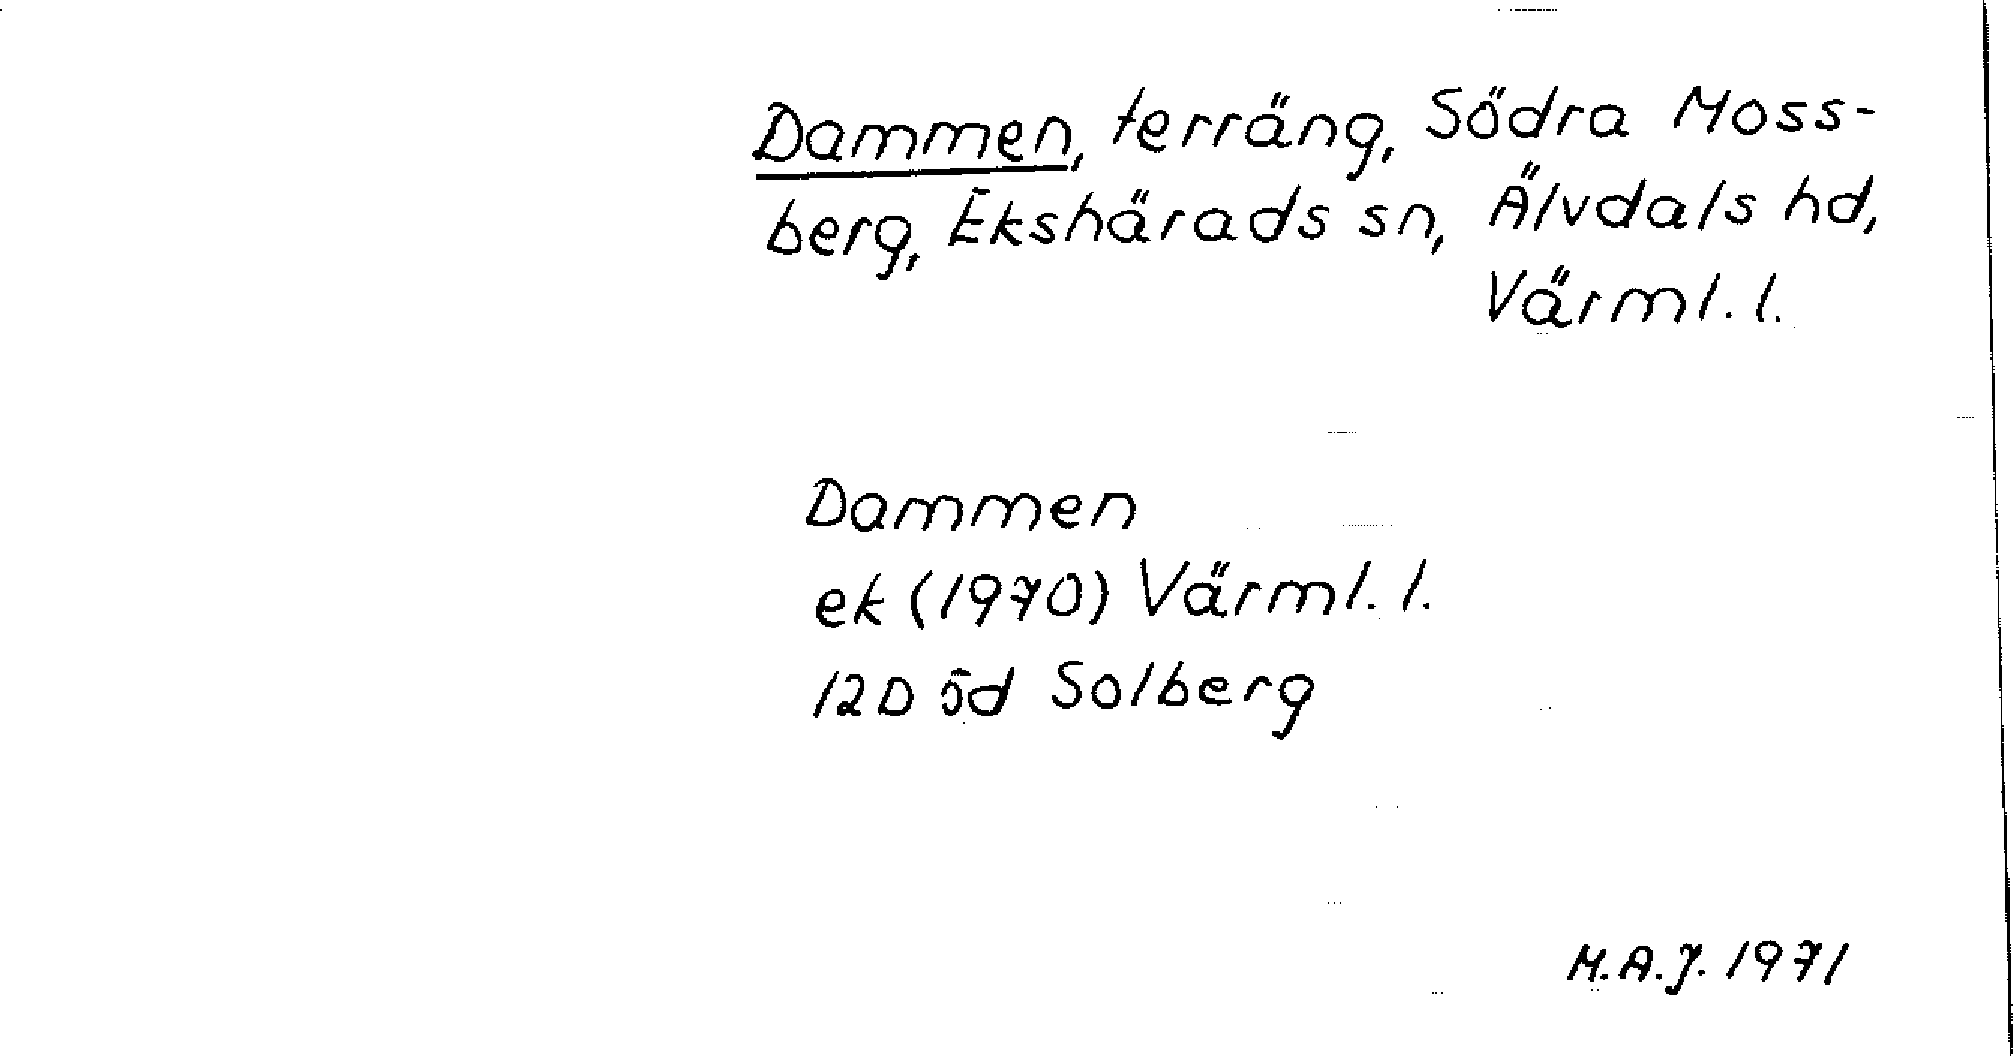 Dammen, terräng, Södra Moss-
berg, Ekshärads sn, Älvdals hd,
Värml. l.
Dammen
ek (1970) Värml. l.
12D öd Solberg
M.A.J. 1971